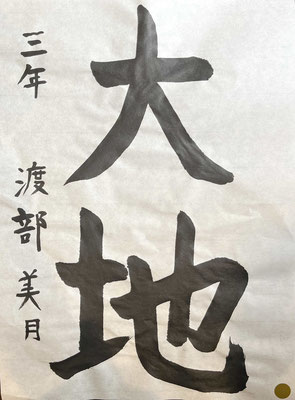 大地
三年 渡部美月